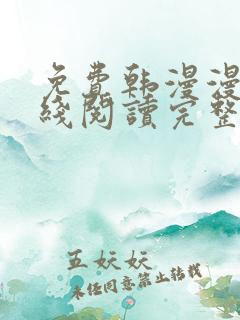 免費韩漫漫
綫閱讀完整
五妖妖
未经同意禁止转载